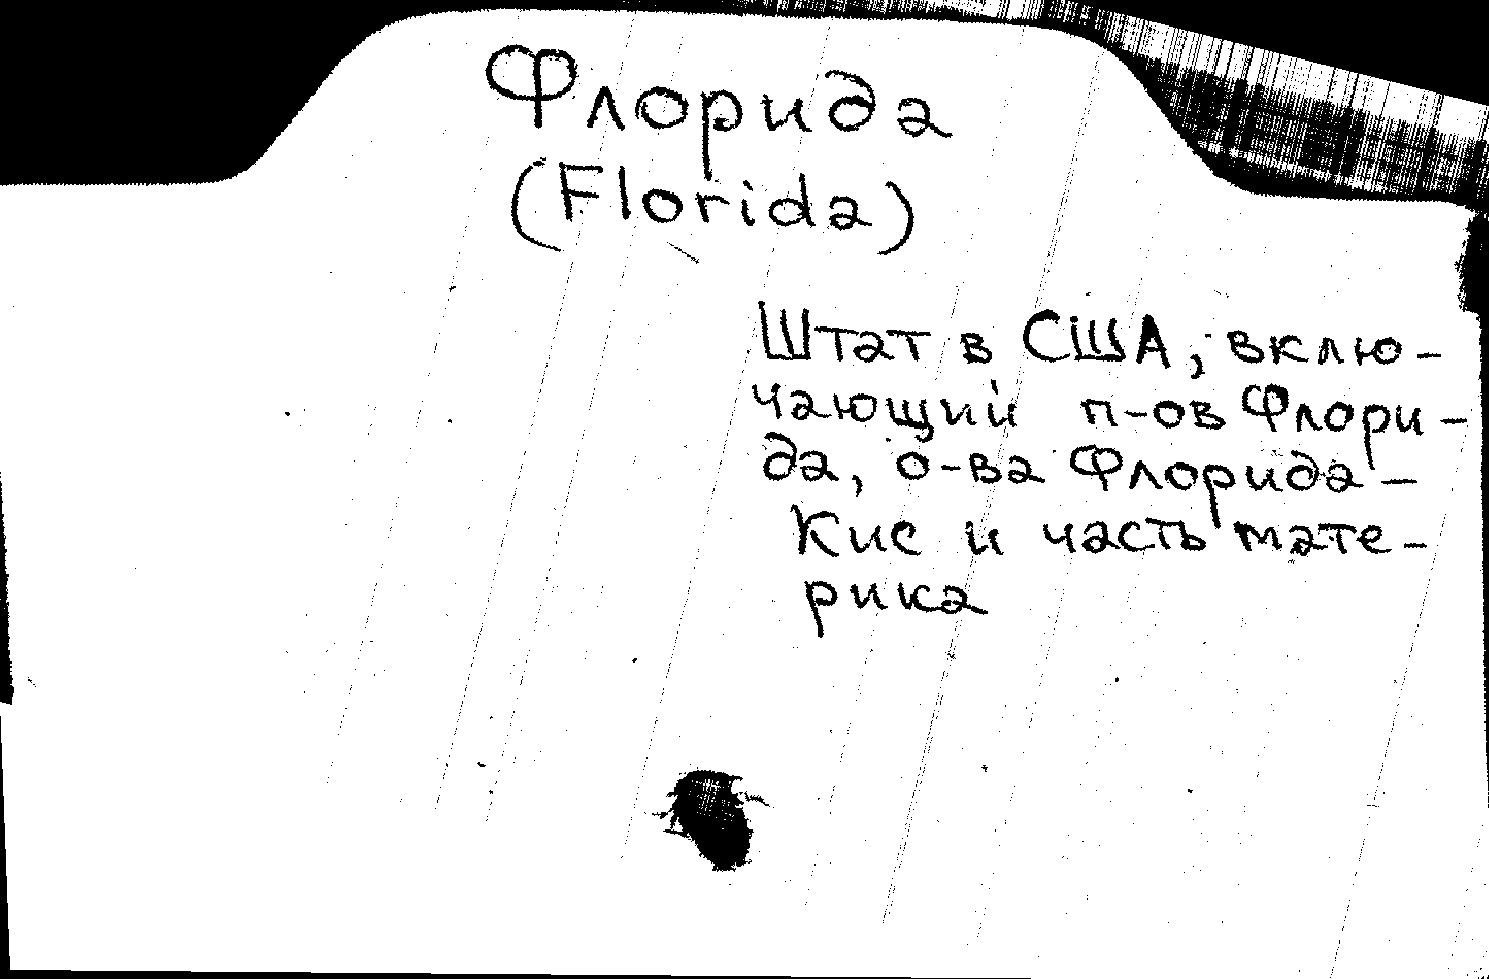 Флорида
(Florida)
Штат в США, вклю-
чающий п-ов Флори-
да, о-ва Флорида-
Кис и часть мате-
рика